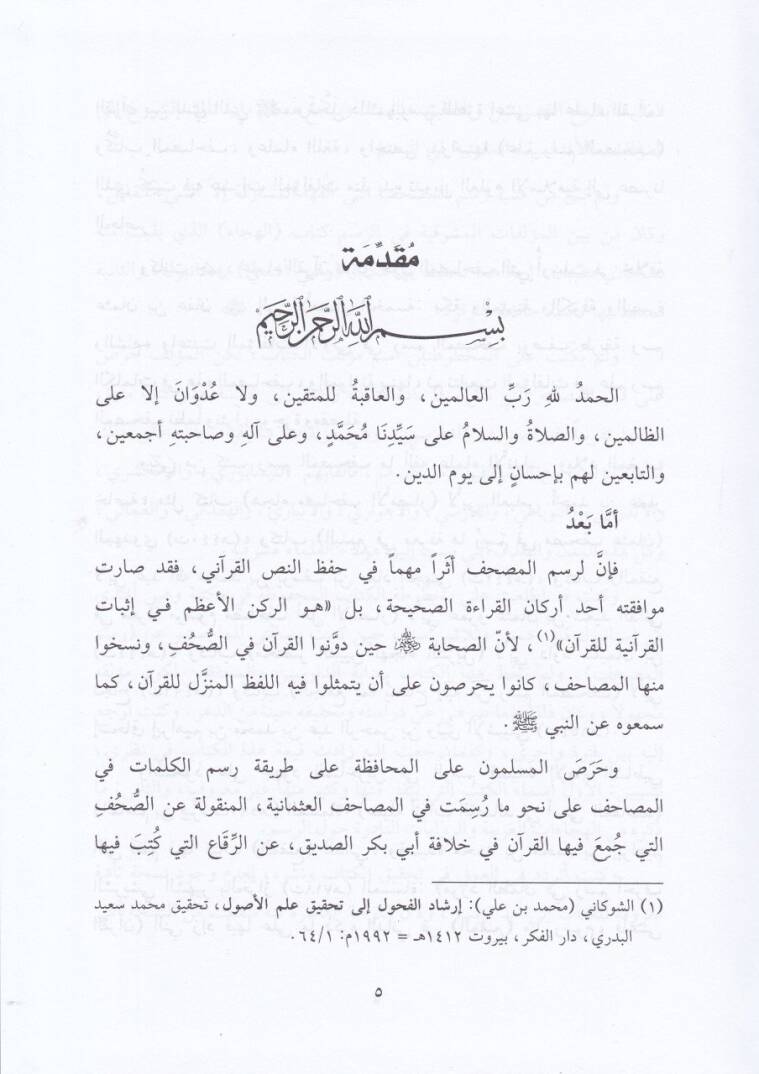 مُقَدِّمَة
بِسْمِ اللهِ الرَّحْمٰنِ الرَّحِيمِ
الحمدُ للهِ رَبِّ العالمين، والعاقبةُ للمتقين، ولا عُدْوَانَ إلا على
الظالمين، والصلاةُ والسلامُ على سَيِّدِنَا مُحَمَّدٍ، وعلى آلهِ وصاحبتهِ أجمعين،
والتابعين لهم بإحسانٍ إلى يوم الدين.
أمَّا بَعْدُ
فإنَّ لرسم المصحف أثراً مهماً في حفظ النص القرآني، فقد صارت
موافقته أحد أركان القراءة الصحيحة، بل «هـو الركن الأعظم فـي إثبات
القرآنية للقرآن»(١)، لأنّ الصحابة ﵃ حين دوَّنوا القرآن في الصُّحُفِ، ونسخوا
منها المصاحف، كانوا يحرصون على أن يتمثلوا فيه اللفظ المنزَّل للقرآن، كما
سمعوه عن النبي ﷺ.
وحَرَصَ المسلمون على المحافظة على طريقة رسم الكلمات في
المصاحف على نحو ما رُسِمَت في المصاحف العثمانية، المنقولة عن الصُّحُفِ
التي جُمِعَ فيها القرآن في خلافة أبي بكر الصديق، عن الرِّقَاع التي كُتِبَ فيها
(١) الشوكاني (محمد بن علي): إرشاد الفحول إلى تحقيق علم الأصول، تحقيق محمد سعيد
البدري، دار الفكر، بيروت ١٤١٢هـ = ١٩٩٢م: ٦٤/١.
٥